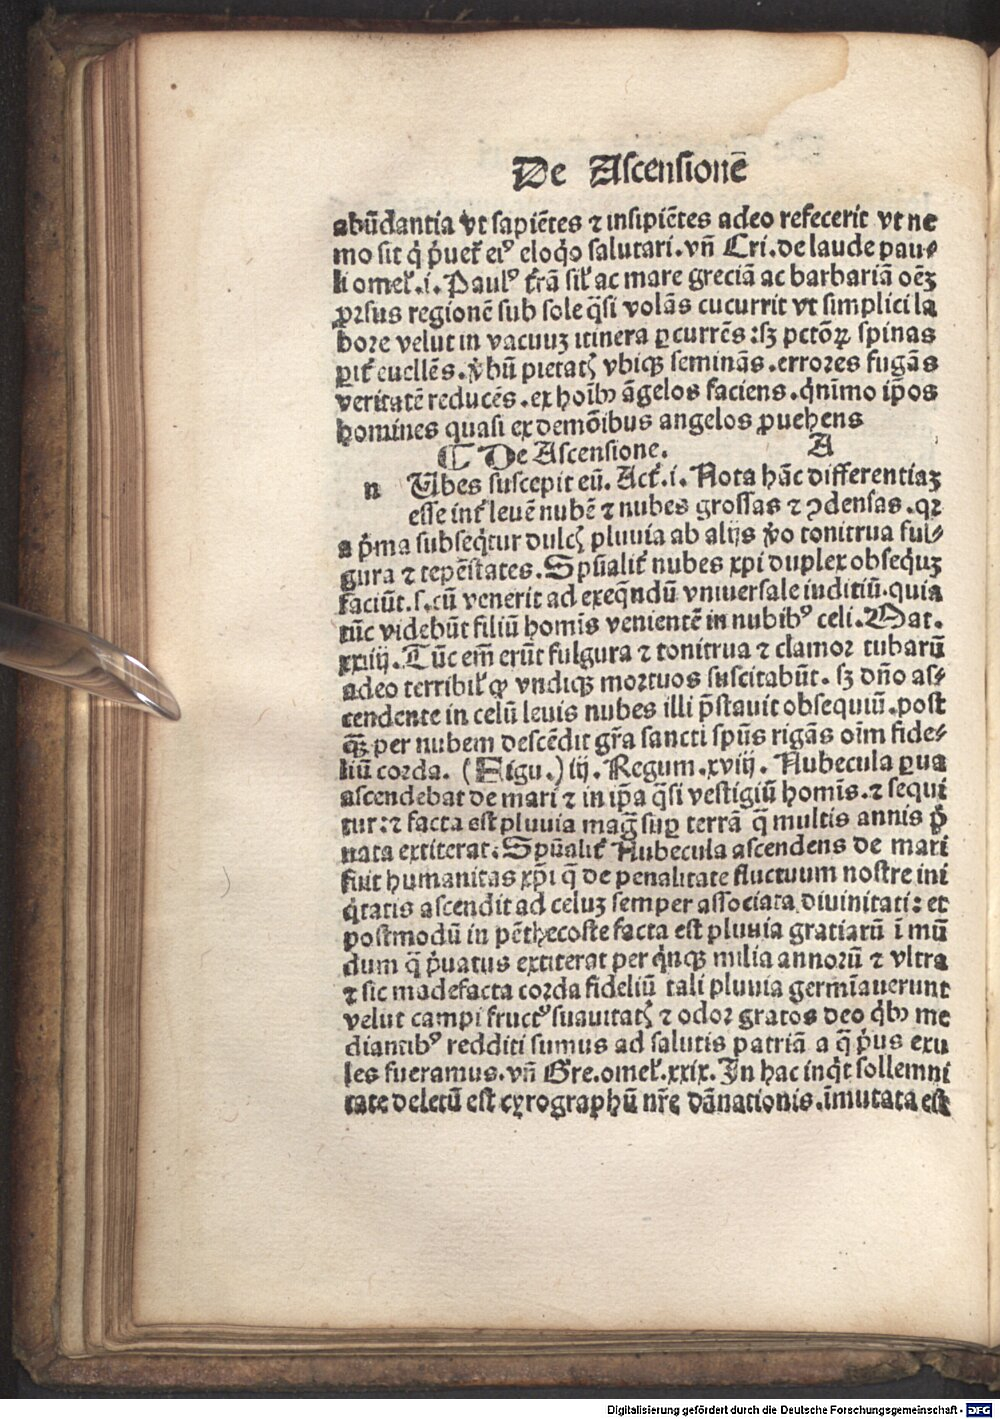 De Ascensionē
abūdantia vt sapiētes ⁊ insipiētes adeo refecerit vt ne
mo sit q̇ p̄uet̉ eiꝰ eloq̇o salutari. vñ Cri. de laude pau⸗
li omel̉. i. Paulꝰ t̉rā sil̉ ac mare greciā ac barbariā oēꝫ
ꝓrsus regionē sub sole q̄si volās cucurrit vt simplici la
bore velut in vacuuꝫ itinera ꝑcurrēs: sꝫ pctōꝝ spinas
ꝑit̉ euellēs. v̇bū pietatꝭ vbiqꝫ seminās. errores fugās
veritatē reducēs. ex hoībꝫ āgelos faciens. q̇nīmo ip̄os
homines quasi ex demōibus angelos ꝓuehens
⸿ De Ascensione. A
n Ubes suscepit eū. Act̉. i. Nota hāc differentiaꝫ
esse int̉ leuē nubē ⁊ nubes grossas ⁊ ꝯdensas. qꝛ
a p̄ma subseq̇tur dulcꝭ pluuia ab alijs v̇o tonitrua ful⸗
gura ⁊ tepēstates. Spūalit̉ nubes xpi duplex obsequꝫ
faciūt. s. cū venerit ad exeq̄ndū vniuersale iuditiū. quia
tūc videbūt filiū homīs venientē in nubibꝰ celi. Mat.
xxiiij. Tūc em̄ erūt fulgura ⁊ tonitrua ⁊ clamor tubarū
adeo terribil̉ qꝫ vndiqꝫ mortuos suscitabūt. sꝫ dño as⸗
cendente in celū leuis nubes illi p̄stauit obsequiū. post
qꝫ per nubem descēdit gr̄a sancti spūs rigās oīm fide⸗
liū corda. (Figu.) iij. Regum. xviij. Nubecula ꝑua
ascendebat de mari ⁊ in ip̄a q̄si vestigiū homīs. ⁊ sequi
tur: ⁊ facta est pluuia maḡ suꝑ terrā q̄ multis annis p̄
nata extiterat. Spūalit̉ Nubecula ascendens de mari
fuit humanitas xp̄i q̄ de penalitate fluctuum nostre ini
q̇tatis ascendit ad celuꝫ semper associata diuinitati: et
postmodū in pēthecoste facta est pluuia gratiarū ī mū
dum q̄ p̄uatus extiterat per q̇nqꝫ milia annorū ⁊ vltra
⁊ sic madefacta corda fideliū tali pluuia germīauerunt
velut campi fructꝰ suauitatꝭ ⁊ odor gratos deo q̇bꝫ me
diantibꝰ redditi sumus ad salutis patriā a q̄ p̄us exu
les fueramus. vñ Gre. omel̉. xxix. In hac inq̇t sollemni
tate deletū est cyrographū nr̄e dānationis. īmutata est
Digitalisierung gefördert durch die Deutsche Forschungsgemeinschaft - DFG